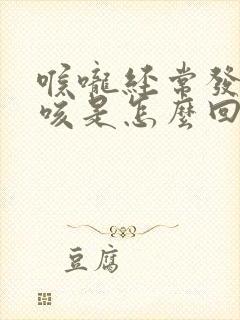 喉嚨經常發
咳是怎麼回
豆腐